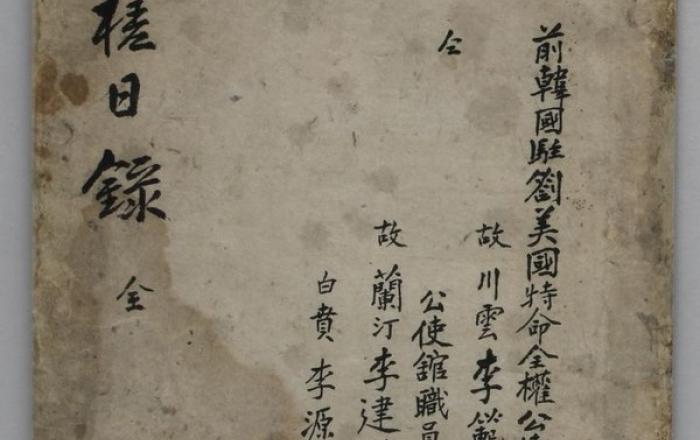 前韓國駐劄美國特命全權公
故川雲李範
仝
公使舘職員
故蘭汀李建
白賁李源
槎日錄 全